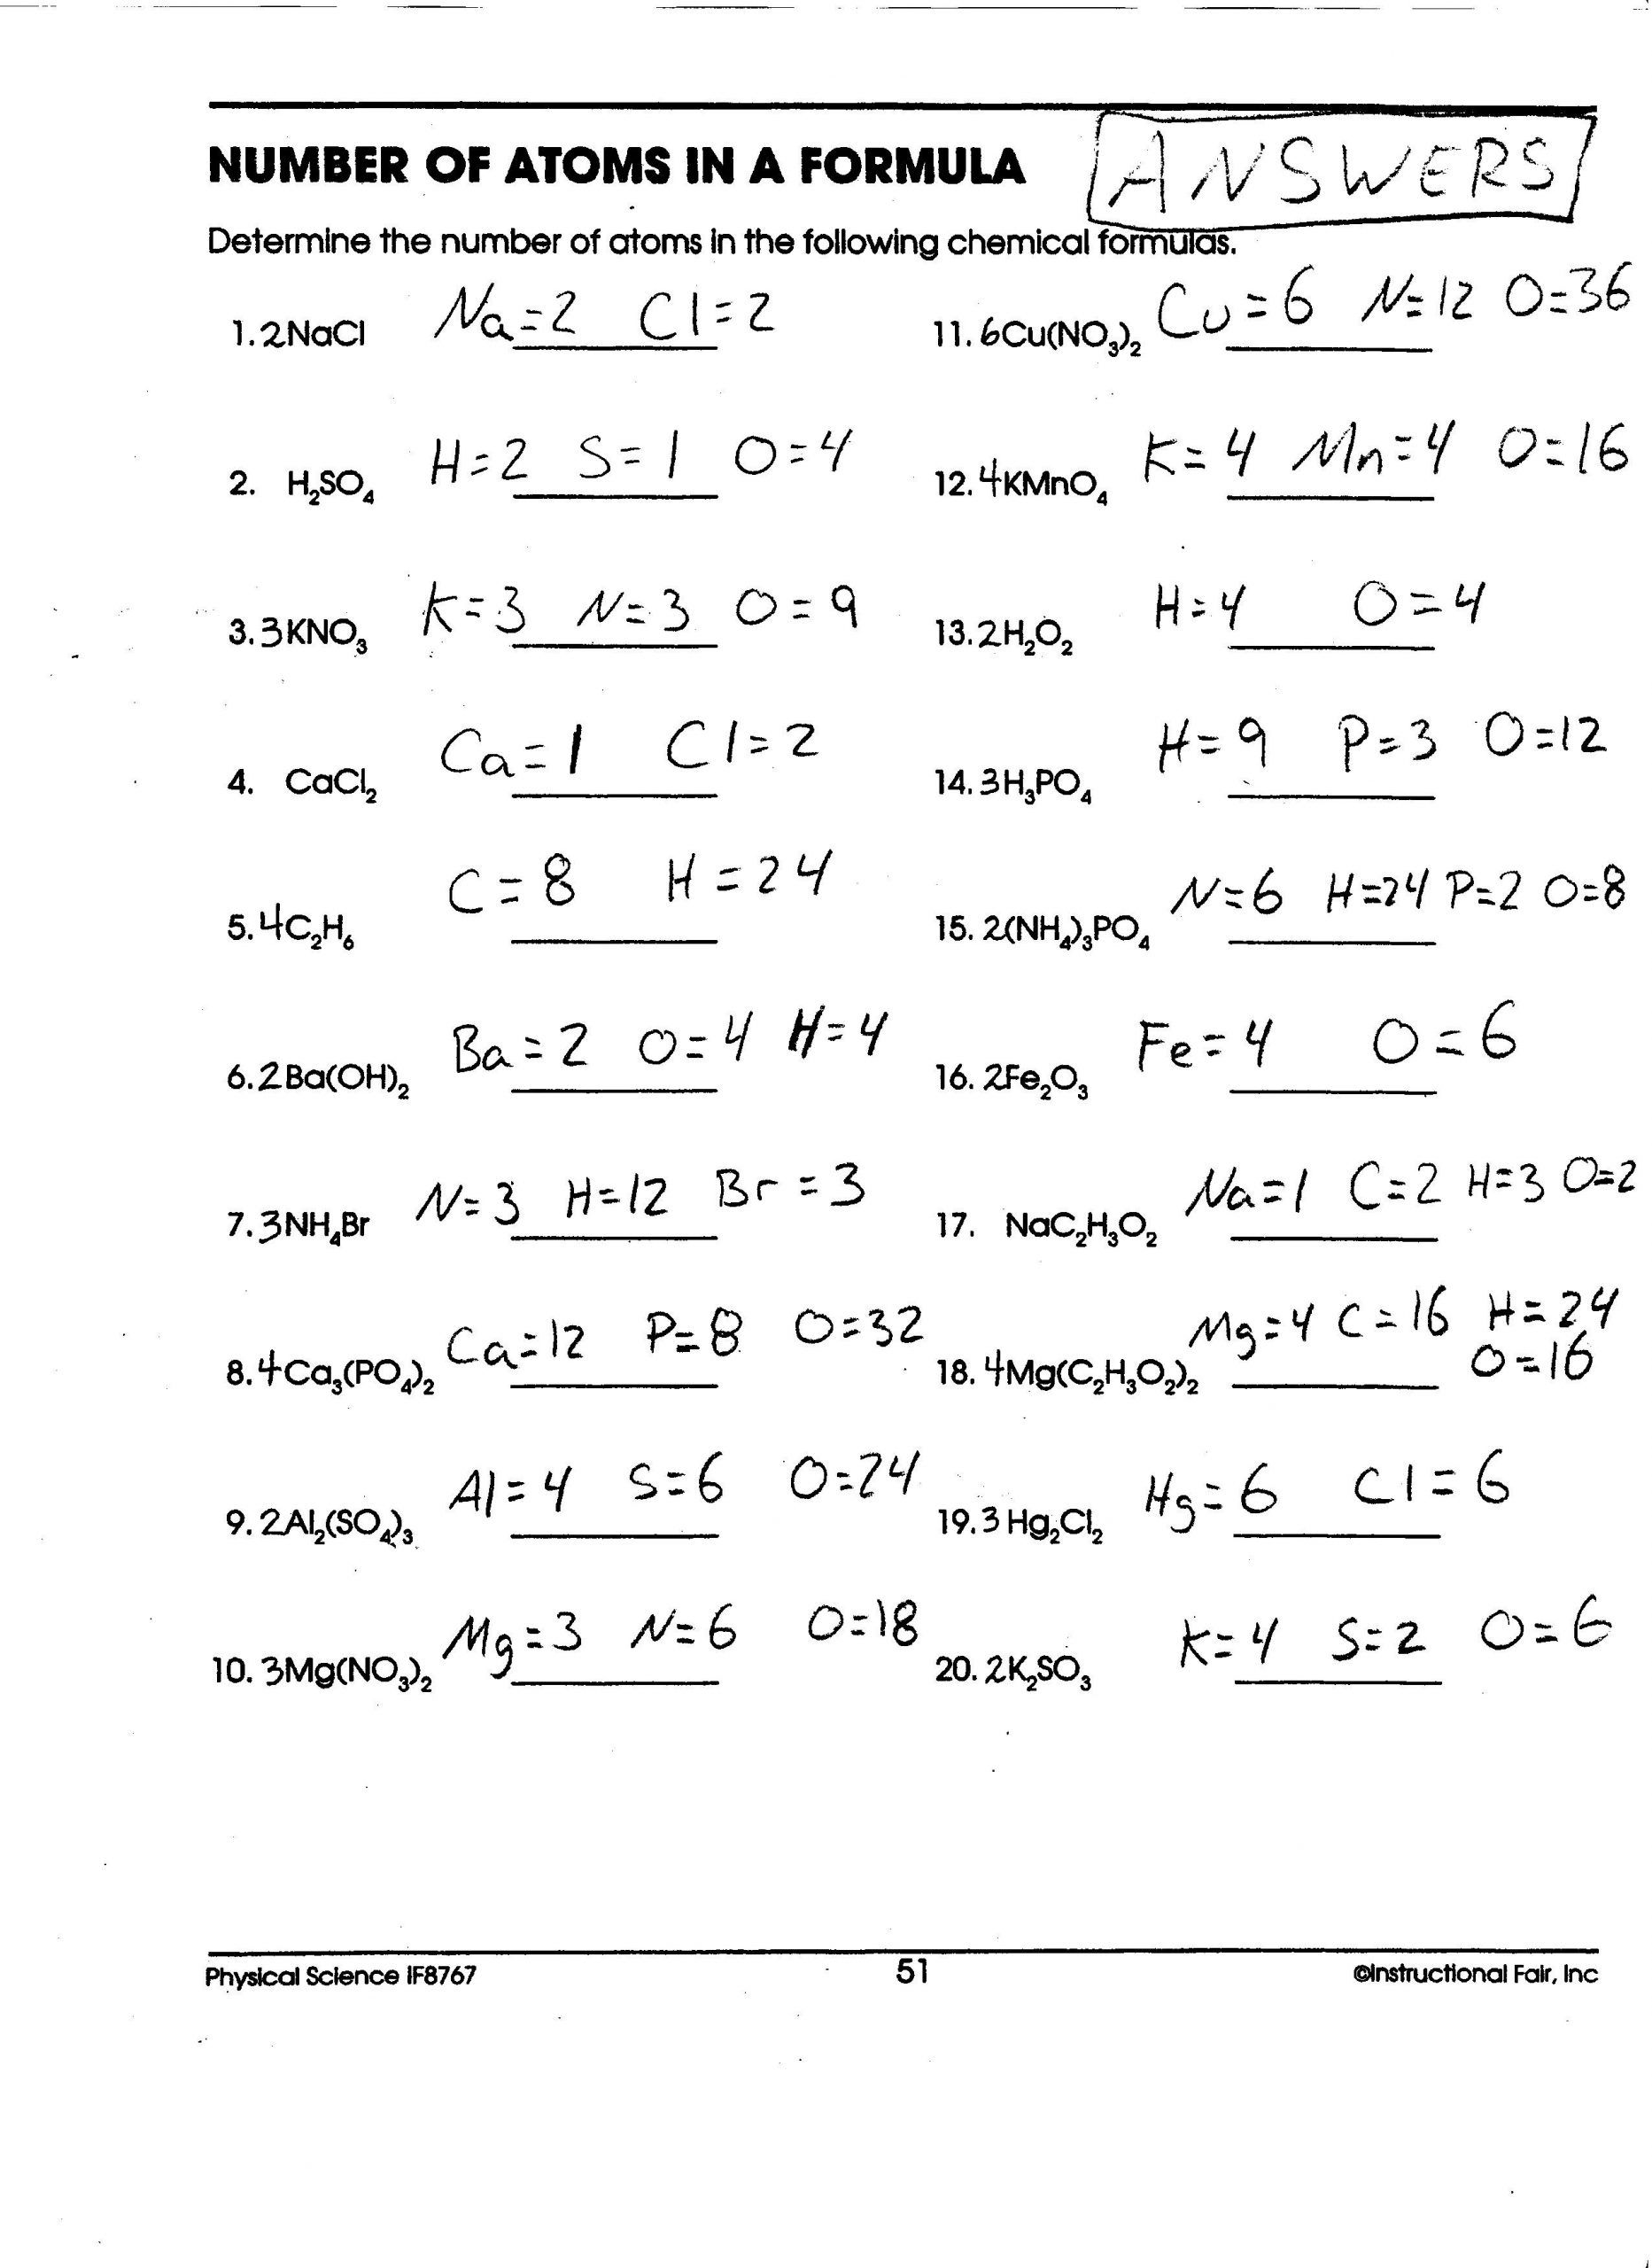 NUMBER OF ATOMS IN A FORMULA
ANSWERS
Determine the number of atoms in the following chemical formulas.
1. 2NaCl Na=2 Cl=2
2. H₂SO₄ H=2 S=1 O=4
3. 3KNO₃ K=3 N=3 O=9
4. CaCl₂ Ca=1 Cl=2
5. 4C₂H₆ C=8 H=24
6. 2Ba(OH)₂ Ba=2 O=4 H=4
7. 3NH₄Br N=3 H=12 Br=3
8. 4Ca₃(PO₄)₂ Ca=12 P=8 O=32
9. 2Al₂(SO₄)₃ Al=4 S=6 O=24
10. 3Mg(NO₃)₂ Mg=3 N=6 O=18
11. 6Cu(NO₃)₂ Cu=6 N=12 O=36
12. 4KMnO₄ K=4 Mn=4 O=16
13. 2H₂O₂ H=4 O=4
14. 3H₃PO₄ H=9 P=3 O=12
15. 2(NH₄)₃PO₄ N=6 H=24 P=2 O=8
16. 2Fe₂O₃ Fe=4 O=6
17. NaC₂H₃O₂ Na=1 C=2 H=3 O=2
18. 4Mg(C₂H₃O₂)₂ Mg=4 C=16 H=24
O=16
19. 3Hg₂Cl₂ Hg=6 Cl=6
20. 2K₂SO₃ K=4 S=2 O=6
Physical Science IF8767
51
©Instructional Fair, Inc